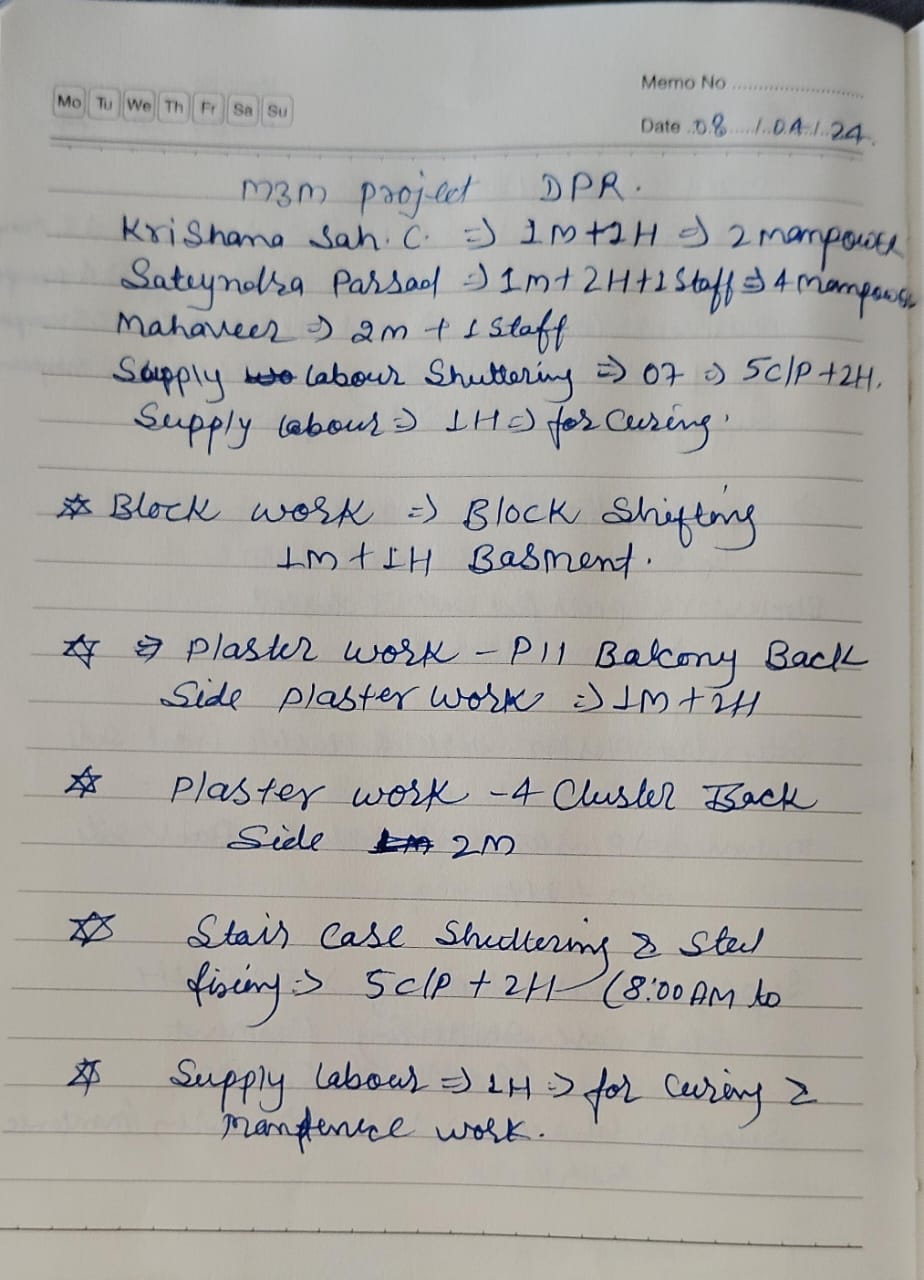 Mo Tu We Th Fr Sa Su
Memo No
Date 08/04/24.
M3M project DPR.
Krishana Sah. C. => 1M+1H => 2 manpower
Sateyndra Parsad => 1M+2H+1 Staff => 4 manpower
Mahaveer => 2M + 1 Staff
Supply labour Shuttering => 07 => 5C/P+2H.
Supply labour => 1H => for Curing.
☆ Block work => Block Shifting
1M+1H Basment.
☆ => Plaster work - P11 Balcony Back
Side plaster work => 1M+2H
☆ Plaster work -4 Cluster Back
Side 2M
☆ Stair Case Shuttering & Steel
fixing => 5C/P + 2H (8:00 AM to
☆ Supply labour => 1H => for Curing &
work.